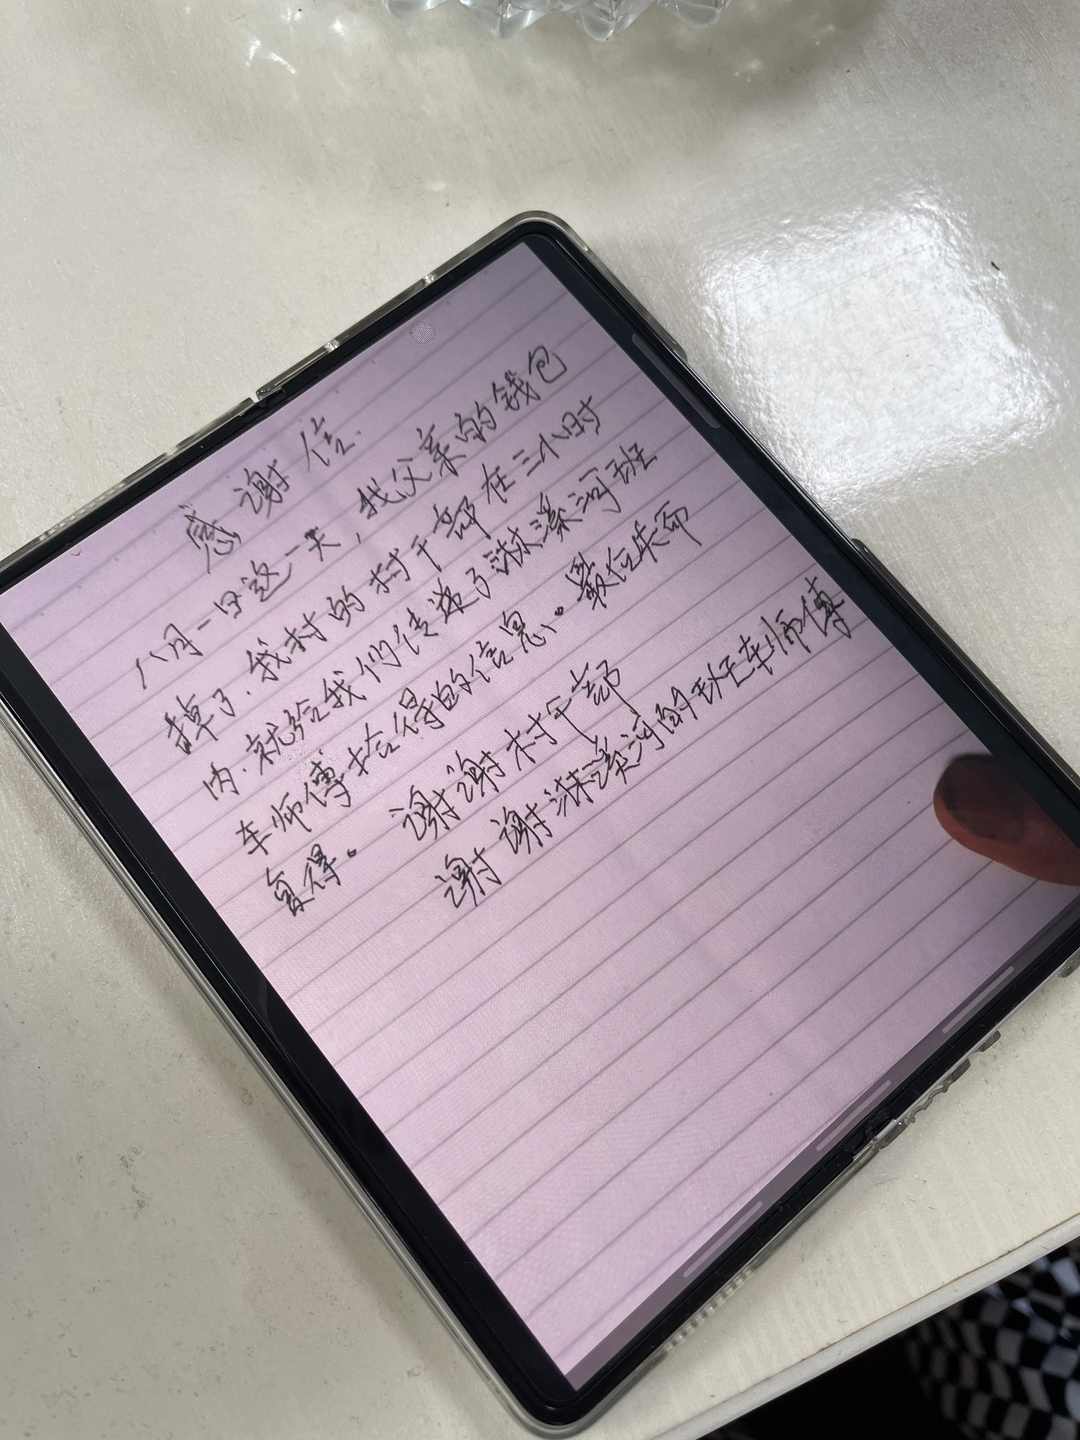 感谢信.
八月一日这一天，我父亲的钱包
掉了.我村的村干部在三小时
内.就给我们传递了淋溪河班
车师傅拾得的信息.最位失而
复得。谢谢村干部
谢谢淋溪河的班车师傅